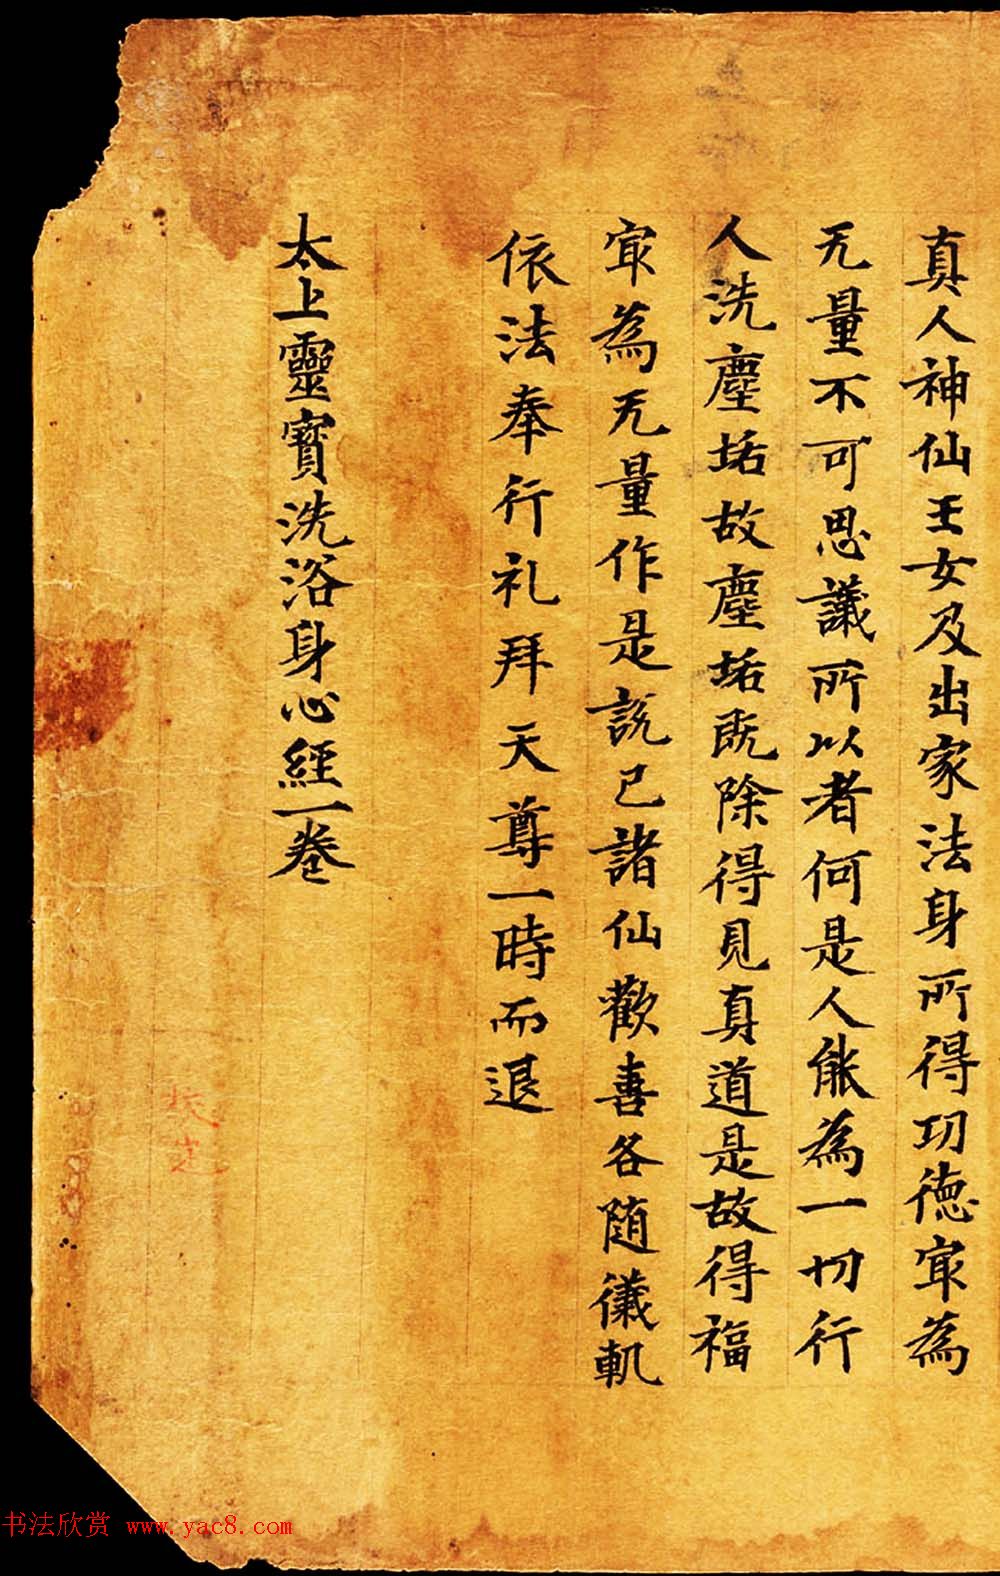 真人神仙玉女及出家法身所得功德冣為
无量不可思議所以者何是人能為一切行
人洗塵垢故塵垢既除得見真道是故得福
冣為无量作是說已諸仙歡喜各随儀軌
依法奉行礼拜天尊一時而退
太上靈寳洗浴身心經一卷
书法欣赏 www.yac8.com